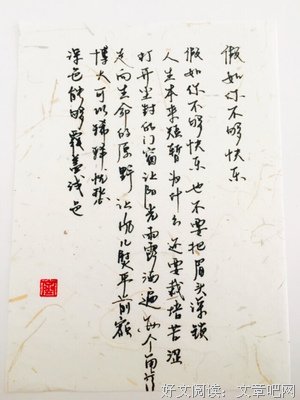 假如你不够快乐
假如你不够快乐 也不要把眉头深锁
人生本来短暂 为什么 还要栽培苦涩
打开尘封的门窗 让阳光雨露洒遍 每个角落
走向生命的原野 让风儿熨平前额
博大可以稀释忧愁
深色能够覆盖浅色
好文阅读：文章吧网